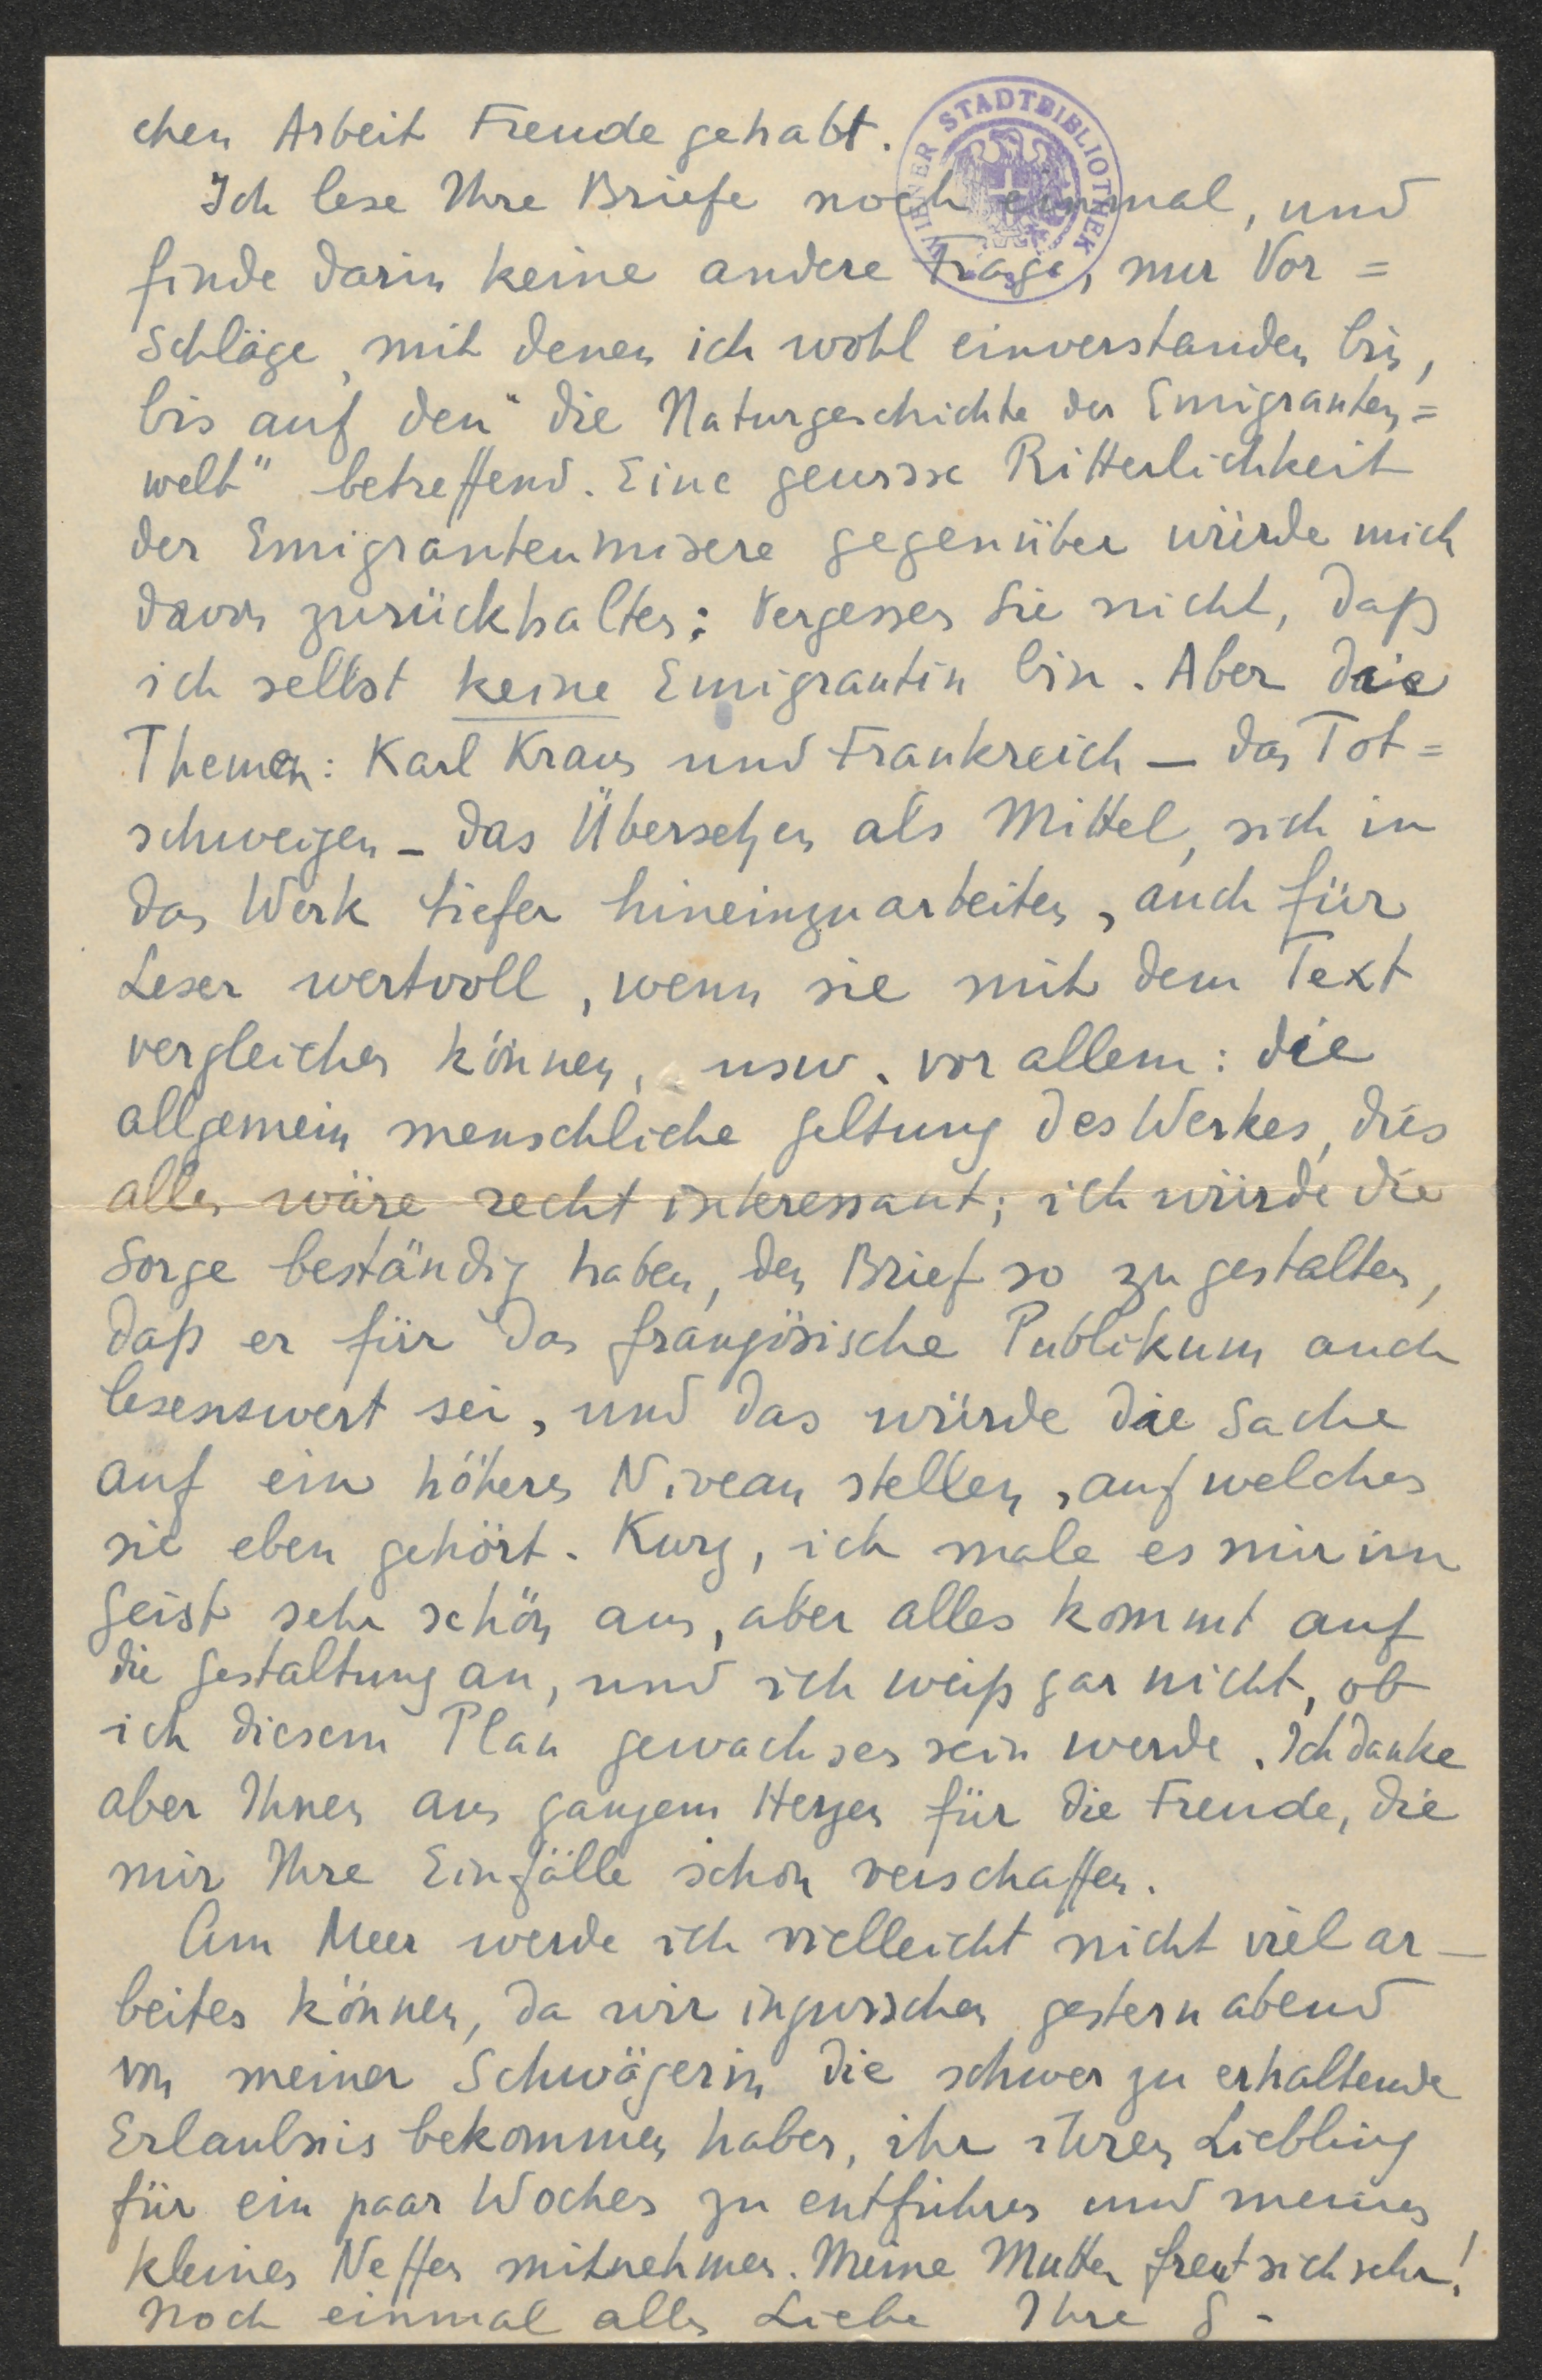 chen Arbeit Freude gehabt.
WIENER STADTBIBLIOTHEK
Ich lese Ihre Briefe noch einmal, und
finde darin keine andere Frage, nur Vor=
schläge, mit denen ich wohl einverstanden bin,
bis auf den "die Naturgeschichte der Emigranten=
welt" betreffend. Eine gewisse Ritterlichkeit
der Emigrantenmisere gegenüber würde mich
davon zurückhalten: Vergessen Sie nicht, daß
ich selbst keine Emigrantin bin. Aber die
Themen: Karl Kraus und Frankreich – das Tot=
schweigen – das Übersetzen als Mittel, sich in
das Werk tiefer hineinzuarbeiten, auch für
Leser wertvoll, wenn sie mit dem Text
vergleichen können, usw. vor allem: die
allgemein menschliche Geltung des Werkes, dies
alles wäre recht interessant; ich würde die
Sorge beständig haben, den Brief so zu gestalten,
daß er für das französische Publikum auch
lesenswert sei, und das würde die Sache
auf ein höheres Niveau stellen, auf welches
sie eben gehört. Kurz, ich male es mir im
Geist sehr schön aus, aber alles kommt auf
die Gestaltung an, und ich weiß gar nicht, ob
ich diesem Plan gewachsen sein werde. Ich danke
aber Ihnen aus ganzem Herzen für die Freude, die
mir Ihre Einfälle schon verschaffen.
Am Meer werde ich vielleicht nicht viel ar–
beiten können, da wir inzwischen gestern abend
von meiner Schwägerin die schwer zu erhaltende
Erlaubnis bekommen haben, ihr ihren Liebling
für ein paar Wochen zu entführen und meinen
kleinen Neffen mitnehmen. Meine Mutter freut sich sehr!
Noch einmal alles Liebe Ihre S-